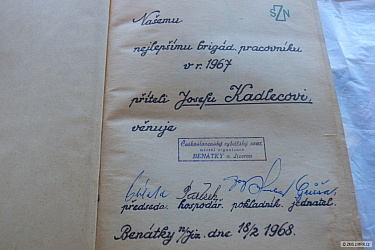 SZN
Našemu
nejlepšímu brigád. pracovníku
v r. 1967
příteli Josefu Kadlecovi,
věnuje
Československý rybářský svaz
místní organisace
BENÁTKY n. Jizerou
předseda hospodář. pokladník jednatel.
Benátky n/Jiz. dne 18/2 1968.